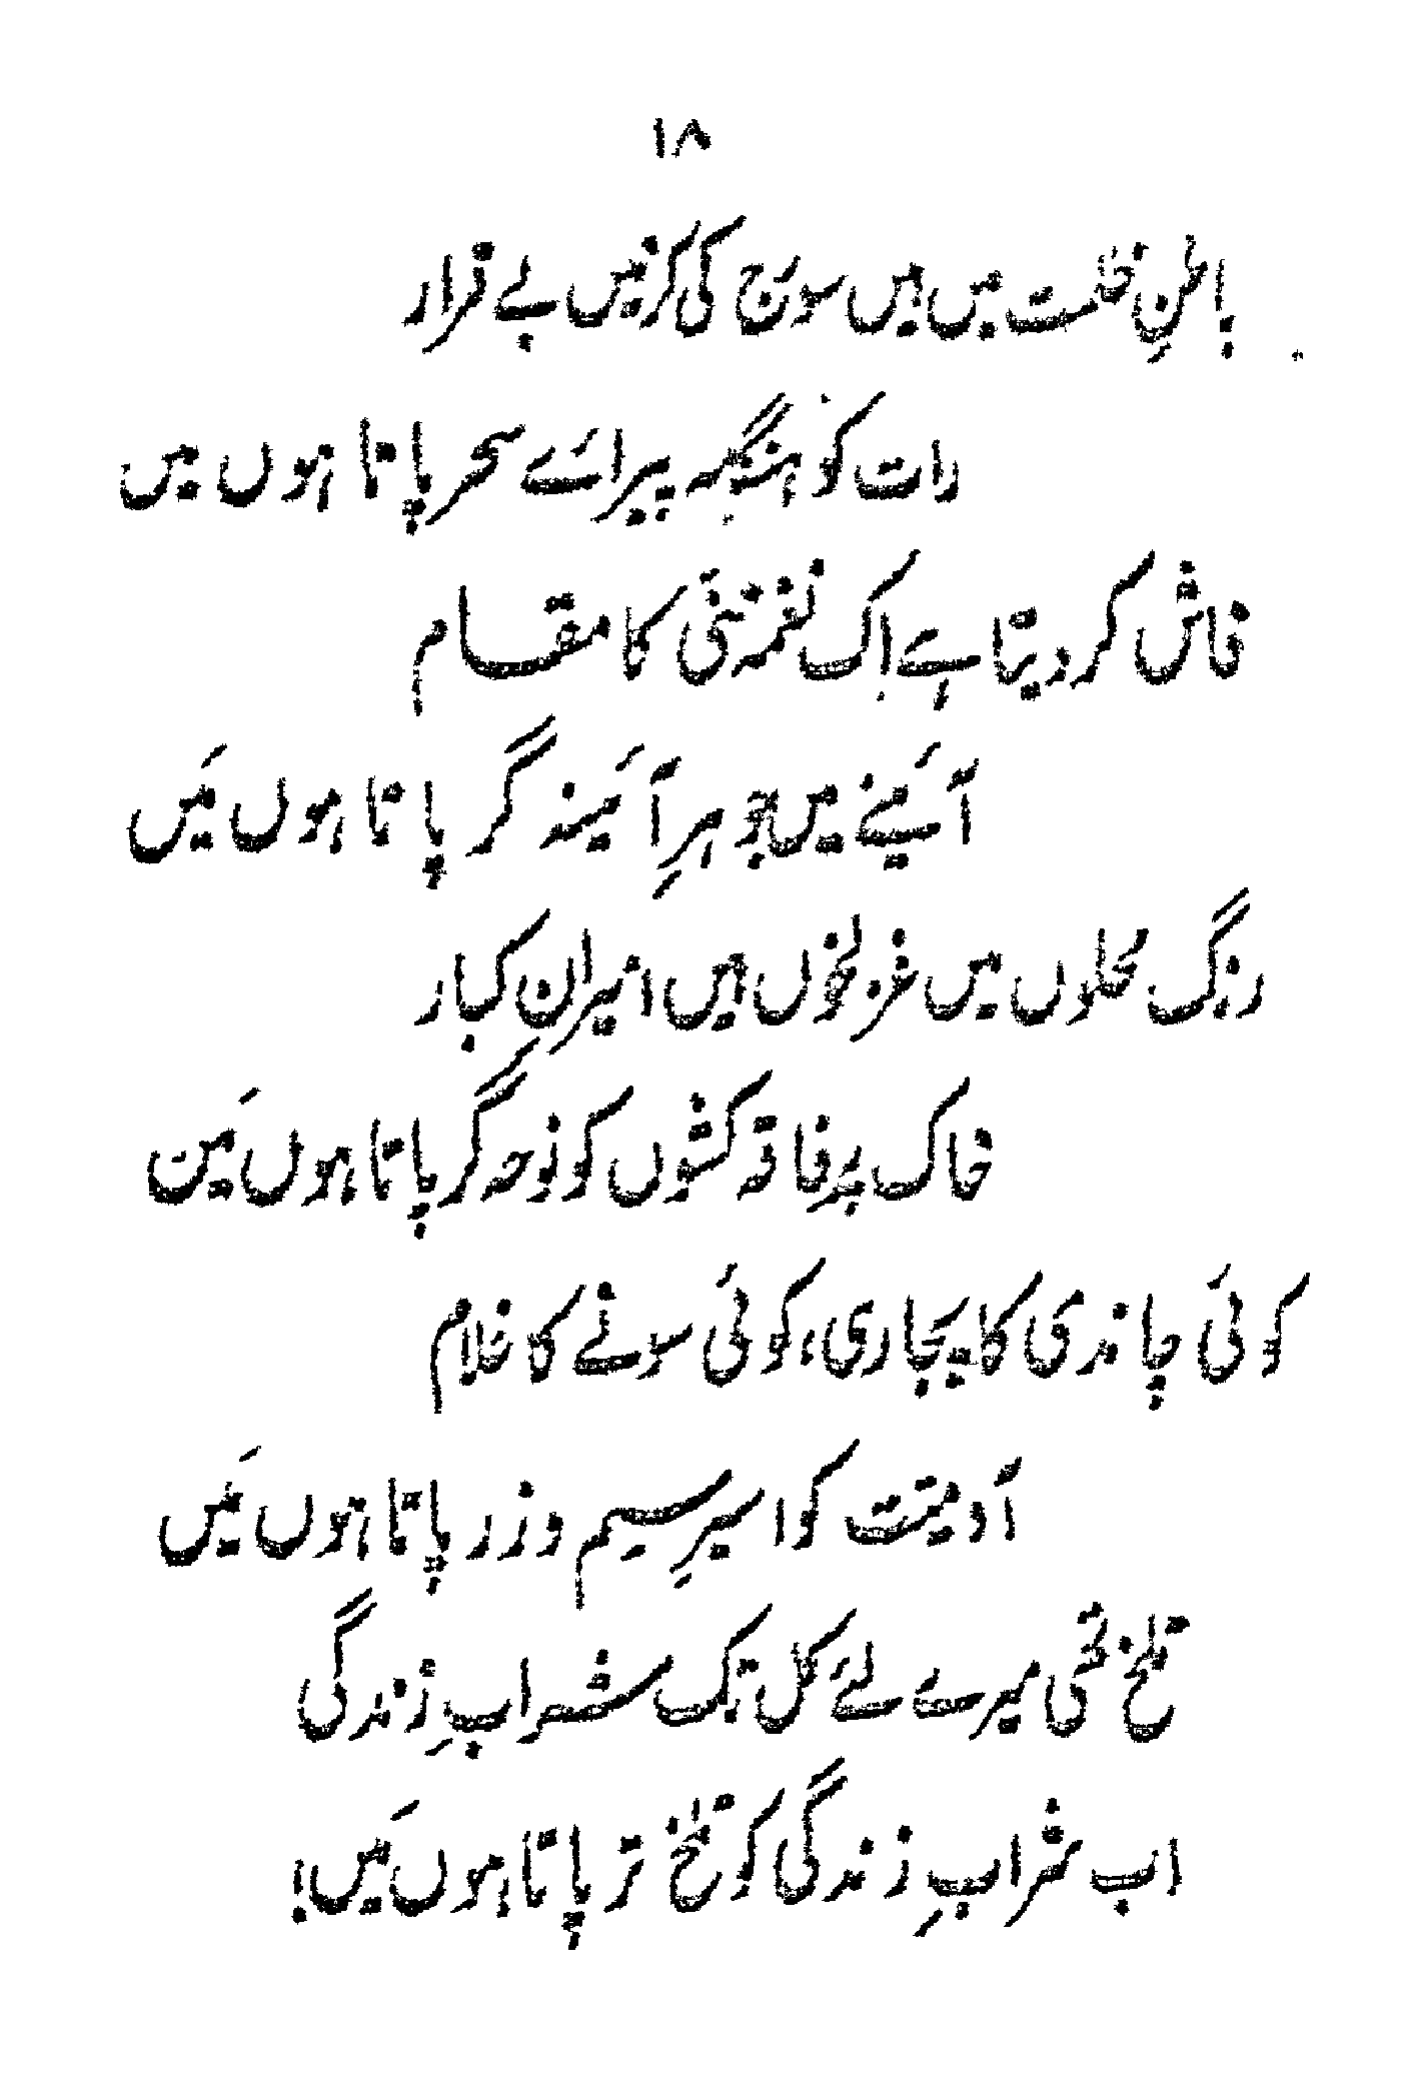 ۱۸
باطنِ ظلمت میں ہیں سورج کی کرنیں بے قرار
رات کو ہنگامہ پیرائے سحر پاتا ہوں میں
فاش کر دیتا ہے اک نغمہ مغنّی کا مقام
آئینے میں جوہرِ آئینہ گر پاتا ہوں مَیں
رنگ محلوں میں غزلخوں ہیں امیرانِ کبار
خاک پر فاقہ کشوں کو نوحہ گر پاتا ہوں مَیں
کوئی چاندی کا پجاری، کوئی سونے کا غلام
آدمیّت کو اسیرِ سیم و زر پاتا ہوں مَیں
تلخ تھی میرے لئے کل تک شرابِ زندگی
اب شرابِ زندگی کو تلخ تر پاتا ہوں مَیں!